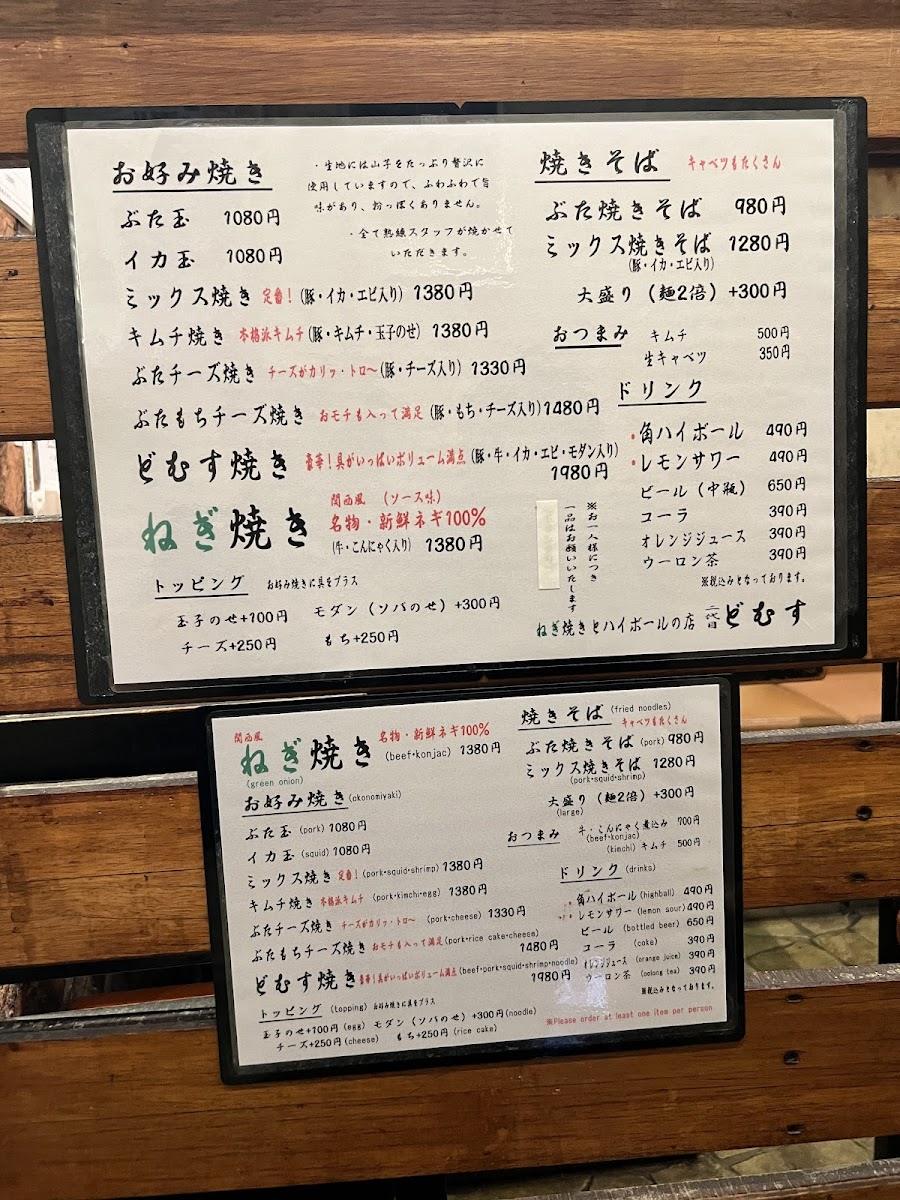 お好み焼き
・生地には山芋をたっぷり贅沢に
使用していますので、ふわふわで旨
味があり、粉っぽくありません。
・全て熟練スタッフが焼かせて
いただきます。
ぶた玉 1080円
イカ玉 1080円
ミックス焼き 定番!(豚・イカ・エビ入り) 1380円
キムチ焼き 本格派キムチ(豚・キムチ・玉子のせ) 1380円
ぶたチーズ焼き チーズがカリッ・トロ〜(豚・チーズ入り) 1330円
ぶたもちチーズ焼き おモチも入って満足(豚・もち・チーズ入り) 1480円
どむす焼き 豪華!具がいっぱいボリューム満点(豚・牛・イカ・エビ・モダン入り)
1980円
関西風 (ソース味)
ねぎ焼き 名物・新鮮ネギ100%
(牛・こんにゃく入り) 1380円
トッピング お好み焼きに具をプラス
玉子のせ+100円 モダン(ソバのせ)+300円
チーズ+250円 もち+250円
焼きそば キャベツもたくさん
ぶた焼きそば 980円
ミックス焼きそば 1280円
(豚・イカ・エビ入り)
大盛り(麺2倍)+300円
おつまみ キムチ 500円
生キャベツ 350円
ドリンク
・角ハイボール 490円
・レモンサワー 490円
ビール(中瓶) 650円
コーラ 390円
オレンジジュース 390円
ウーロン茶 390円
※税込みとなっております。
※お一人様につき
一品はお願いいたします
ねぎ焼きとハイボールの店 二代目 どむす
関西風
ねぎ焼き 名物・新鮮ネギ100%
(green onion) (beef・konjac) 1380円
お好み焼き(okonomiyaki)
ぶた玉 (pork) 1080円
イカ玉 (squid) 1080円
ミックス焼き 定番!(pork・squid・shrimp) 1380円
キムチ焼き 本格派キムチ (pork・kimchi・egg) 1380円
ぶたチーズ焼き チーズがカリッ・トロ〜 (pork・cheese) 1330円
ぶたもちチーズ焼き おモチも入って満足(pork・rice cake・cheese)
1480円
どむす焼き 豪華!具がいっぱいボリューム満点(beef・pork・squid・shrimp・noodle)
1980円
トッピング (topping) お好み焼きに具をプラス
玉子のせ+100円(egg) モダン(ソバのせ)+300円(noodle)
チーズ+250円(cheese) もち+250円(rice cake)
焼きそば (fried noodles)
キャベツもたくさん
ぶた焼きそば (pork) 980円
ミックス焼きそば 1280円
(pork・squid・shrimp)
大盛り(麺2倍)+300円
(large)
おつまみ 牛・こんにゃく煮込み 700円
(beef・konjac)
(kimchi) キムチ 500円
ドリンク (drinks)
・角ハイボール (highball) 490円
・レモンサワー (lemon sour) 490円
ビール (bottled beer) 650円
コーラ (coke) 390円
オレンジジュース (orange juice) 390円
ウーロン茶 (oolong tea) 390円
※税込みとなっております。
※Please order at least one item per person